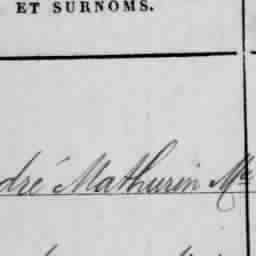 ET SURNOMS.
dré Mathurin Mie